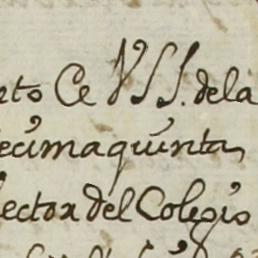 nto Ce VSS. de la
ecimaquinta
lector del Colegio